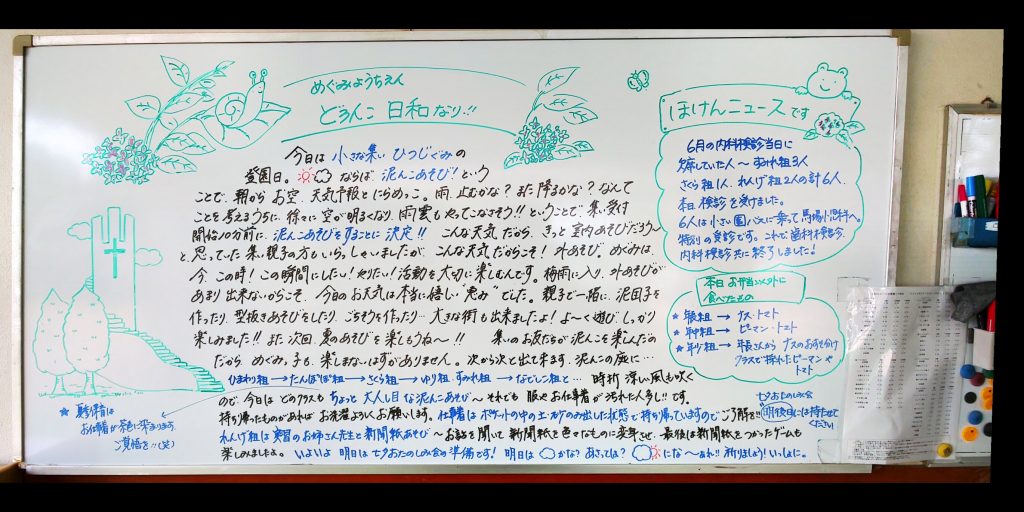 めぐみようちえん
どろんこ日和なり!!
今日は 小さな集い ひつじぐみの
登園日。 ならば 泥んこあそび!という
ことで、朝から お空、天気予報とにらめっこ。雨、止むかな?また降るかな?なんて
ことを考えるうちに、徐々に空が明るくなり、雨雲もやってこなさそう!!ということで集い受付
開始10分前に、泥んこあそびをすることに決定!! こんな天気だから、きっと室内あそびだろう〜
と、思っていた集い親子の方もいらっしゃいましたが、こんな天気だからこそ!外あそび。めぐみは、
今、この時!この瞬間にしたい!やりたい!活動を大切に楽しむんです。梅雨に入り、外あそびが
あまり出来ないからこそ、今日のお天気は本当に嬉しい"恵み"でした。親子で一緒に、泥団子を
作ったり、型抜きあそびをしたり、ごちそうを作ったり…大きな街も出来ましたよ!よ〜く遊び、しっかり
楽しみました!!また次回、夏のあそびを楽しもうね〜!! 集いのお友だちが泥んこを楽しんだの
だから、めぐみっ子も、楽しまないはずがありません。次から次と出て来ます、泥んこの庭に…
ひまわり組→たんぽぽ組→さくら組→ゆり組・すみれ組→なでしこ組と… 時折、涼しい風も吹く
ので、今日は どのクラスも ちょっと大人し目な泥んこあそび〜 それでも 服やお仕事着が汚れた人多し!!です。
持ち帰ったものがあれば、お洗濯よろしくお願いします。仕事着はポケットの中の土・スカのみ出した状態で持ち帰っていますのでご了解を!!
れんげ組は実習のお姉さん先生と新聞紙あそび〜お話を聞いて新聞紙を色々なものに変身させ、最後は新聞紙をつかったゲームも
楽しみましたよ。 いよいよ 明日は 七夕おたのしみ会の準備です!明日は かな?あさっては? にな〜あれ!!祈りましょう!いっしょに。
★ お仕事着が茶色に染まります。
ご覚悟を!!(笑)
七夕おたのしみ会
明後日には持たせて
ください
ほけんニュースです
6月の内科検診当日に
欠席していた人〜すみれ組3人
さくら組1人、れんげ組2人の計6人、
本日検診を受けました。
6人は小さい園バスに乗って馬場小児科へ。
特別の受診です。これで歯科検診、
内科検診共に終了しました!
本日お弁当以外に
食べたもの
★ 年長組→ナス・トマト
★ 年中組→ピーマン・トマト
★ 年少組→年長さんからナスのおすそ分け
クラスで採れたピーマンや
トマト